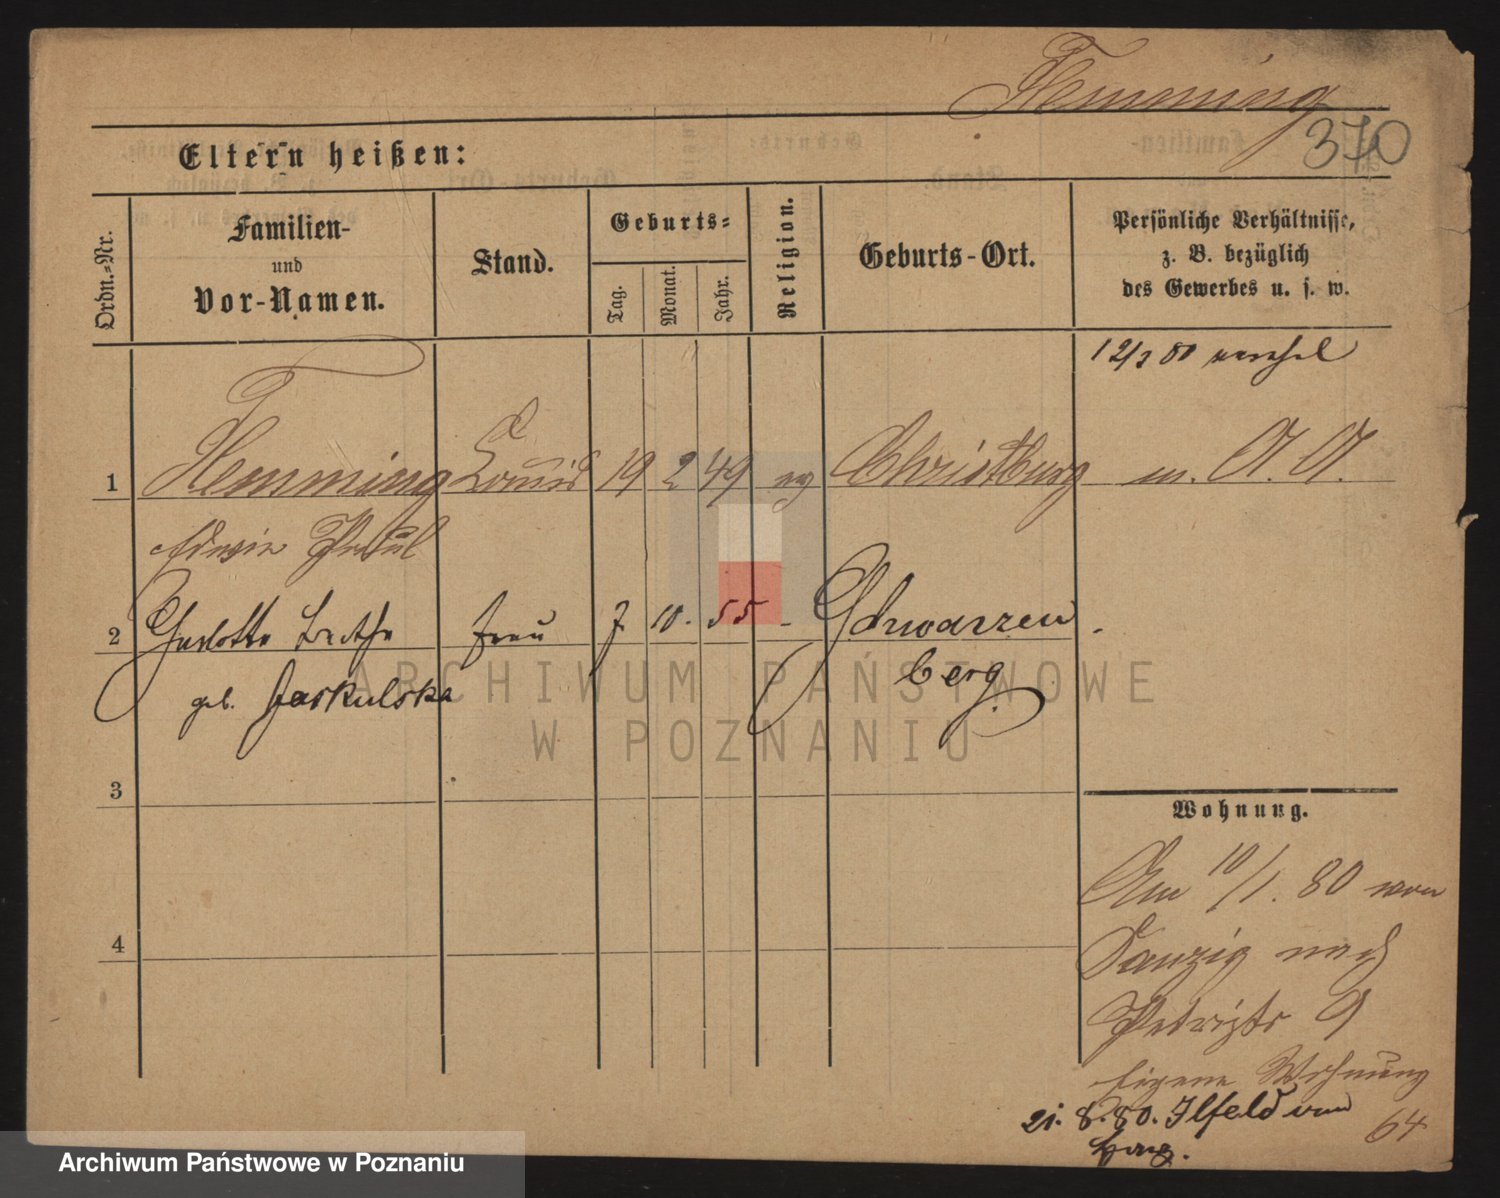 Flemming
370
Eltern heißen:
Ordn.-Nr.
Familien-
und
Vor-Namen.
Stand.
Geburts-
Tag.
Monat.
Jahr.
Religion.
Geburts-Ort.
Persönliche Verhältnisse,
z. B. bezüglich
des Gewerbes u. s. w.
12/3 80
1 Flemming Louis 19 2 49 ev Christburg m. A. A.
Edwin Paul
2 Charlotte Frau 7 10. 55 - Schwarzen
geb. Jaskulska berg
3
Wohnung.
Am 10/1. 80 von
4
Danzig nach
Petristr 9
Eigene Wohnung
21. 8. 80. Ilfeld am 64
Harz.
ARCHIWUM PAŃSTWOWE
W POZNANIU
Archiwum Państwowe w Poznaniu